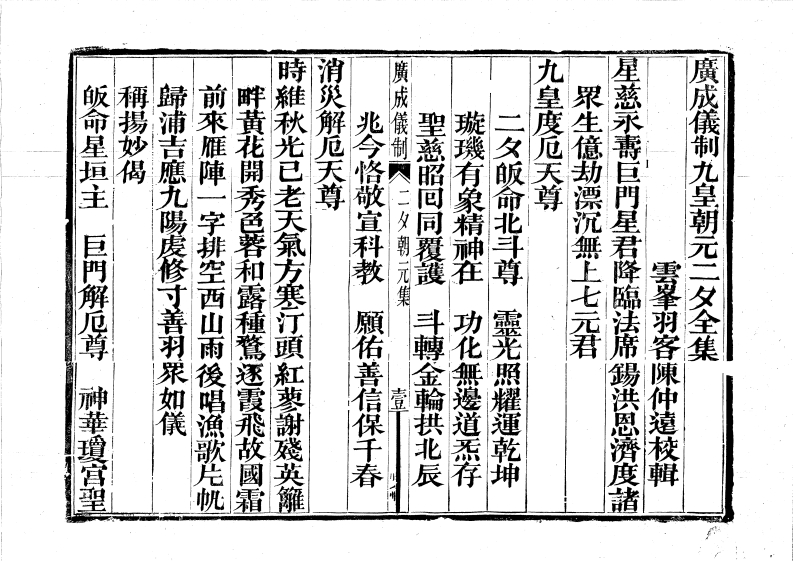 廣成儀制九皇朝元二夕全集
雲峯羽客陳仲遠校輯
星慈永壽巨門星君降臨法席錫洪恩濟度諸
眾生億劫漂沉無上七元君
九皇度厄天尊
二夕皈命北斗尊 靈光照耀運乾坤
璇璣有象精神在 功化無邊道炁存
聖慈昭回同覆護 斗轉金輪拱北辰
兆今恪敬宣科教 願佑善信保千春
廣成儀制 二夕朝元集 壹
消災解厄天尊
時維秋光已老天氣方寒汀頭紅蓼謝殘英籬
畔黃花開秀色蓉和露種鶩逐霞飛故國霜
前來雁陣一字排空西山雨後唱漁歌片帆
歸浦吉應九陽虔修寸善羽眾如儀
稱揚妙偈
皈命星垣主 巨門解厄尊 神華瓊宮聖